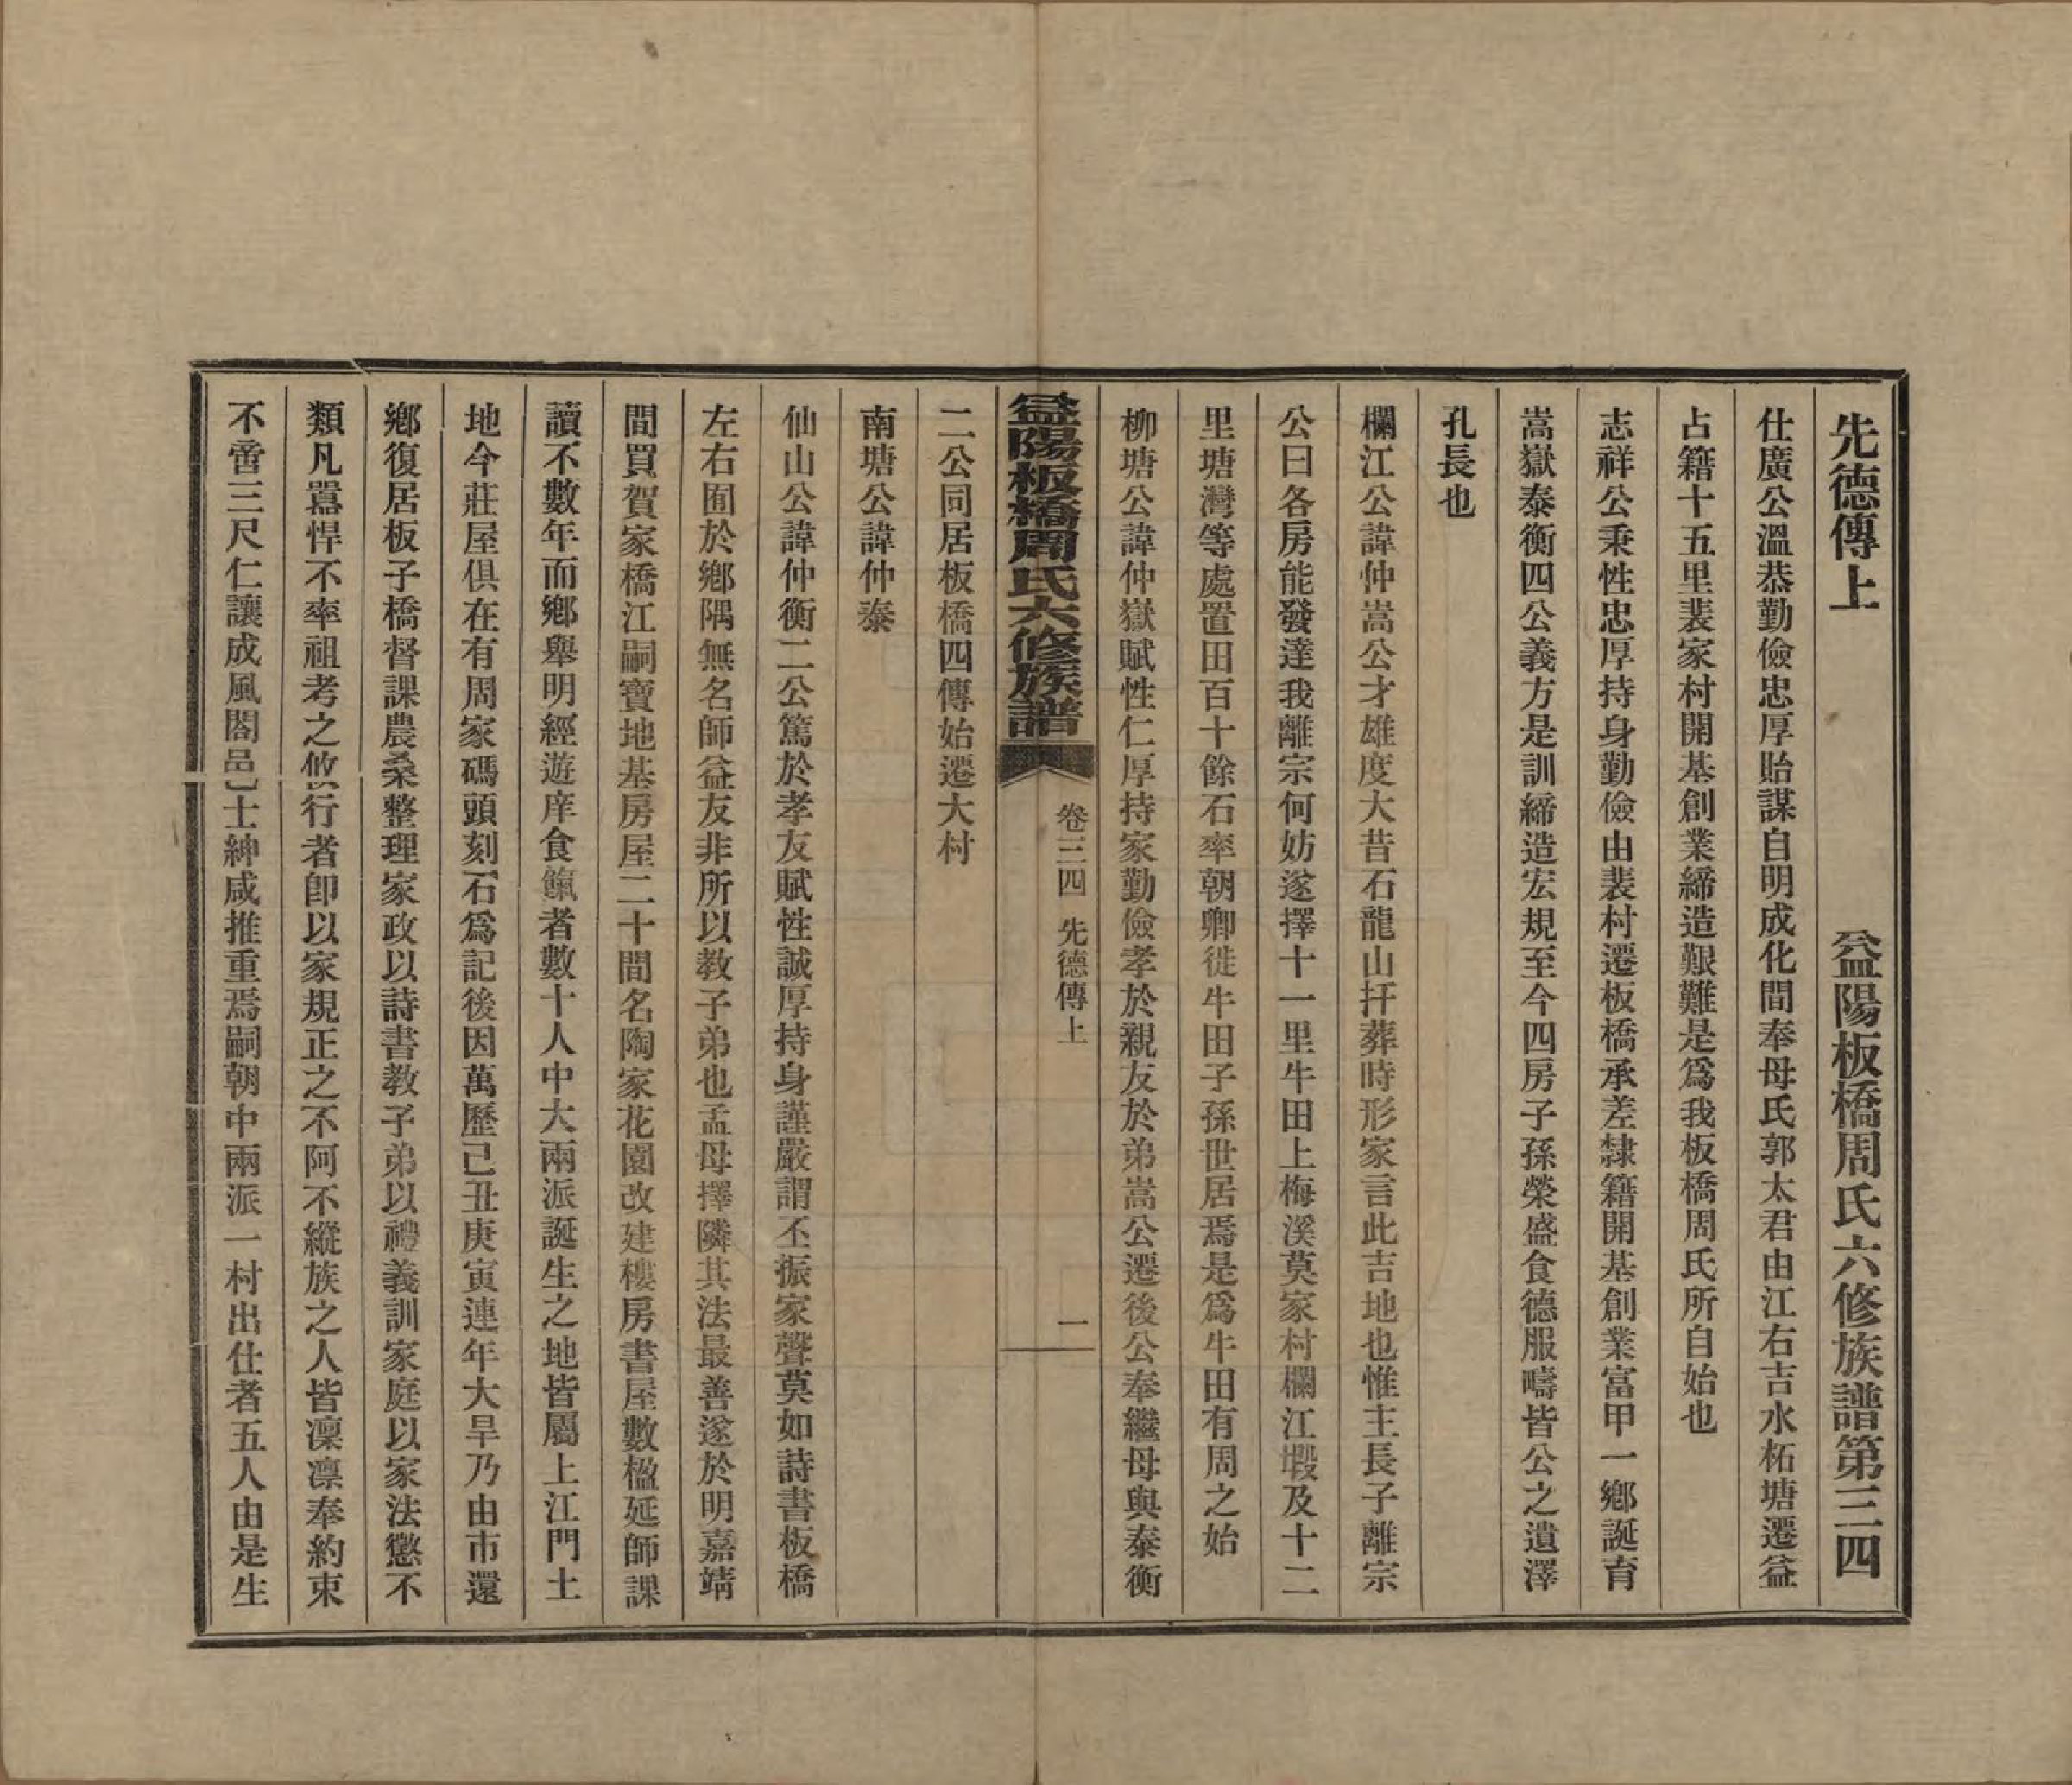 先德傳上　益陽板橋周氏六修族譜第三四
仕廣公溫恭勤儉忠厚貽謀自明成化間奉母氏郭太君由江右吉水柘塘遷益
占籍十五里裴家村開基創業締造艱難是爲我板橋周氏所自始也
志祥公秉性忠厚持身勤儉由裴村遷板橋承差隸籍開基創業富甲一鄉誕育
嵩嶽泰衡四公義方是訓締造宏規至今四房子孫榮盛食德服疇皆公之遺澤
孔長也
欄江公諱仲嵩公才雄度大昔石龍山扦葬時形家言此吉地也惟主長子離宗
公曰各房能發達我離宗何妨遂擇十一里牛田上梅溪莫家村欄江塅及十二
里塘灣等處置田百十餘石率朝卿徙牛田子孫世居焉是爲牛田有周之始
柳塘公諱仲嶽賦性仁厚持家勤儉孝於親友於弟嵩公遷後公奉繼母與泰衡
益陽板橋周氏六修族譜　卷三四　先德傳上　一
二公同居板橋四傳始遷大村
南塘公諱仲泰
仙山公諱仲衡二公篤於孝友賦性誠厚持身謹嚴謂丕振家聲莫如詩書板橋
左右囿於鄉隅無名師益友非所以教子弟也孟母擇隣其法最善遂於明嘉靖
間買賀家橋江嗣寶地基房屋二十間名陶家花園改建樓房書屋數楹延師課
讀不數年而鄉舉明經遊庠食餼者數十人中大兩派誕生之地皆屬上江門土
地今莊屋俱在有周家碼頭刻石爲記後因萬歷己丑庚寅連年大旱乃由市還
鄉復居板子橋督課農桑整理家政以詩書教子弟以禮義訓家庭以家法懲不
類凡嚚悍不率祖考之攸行者卽以家規正之不阿不縱族之人皆凜凜奉約束
不啻三尺仁讓成風閤邑士紳咸推重焉嗣朝中兩派一村出仕者五人由是生